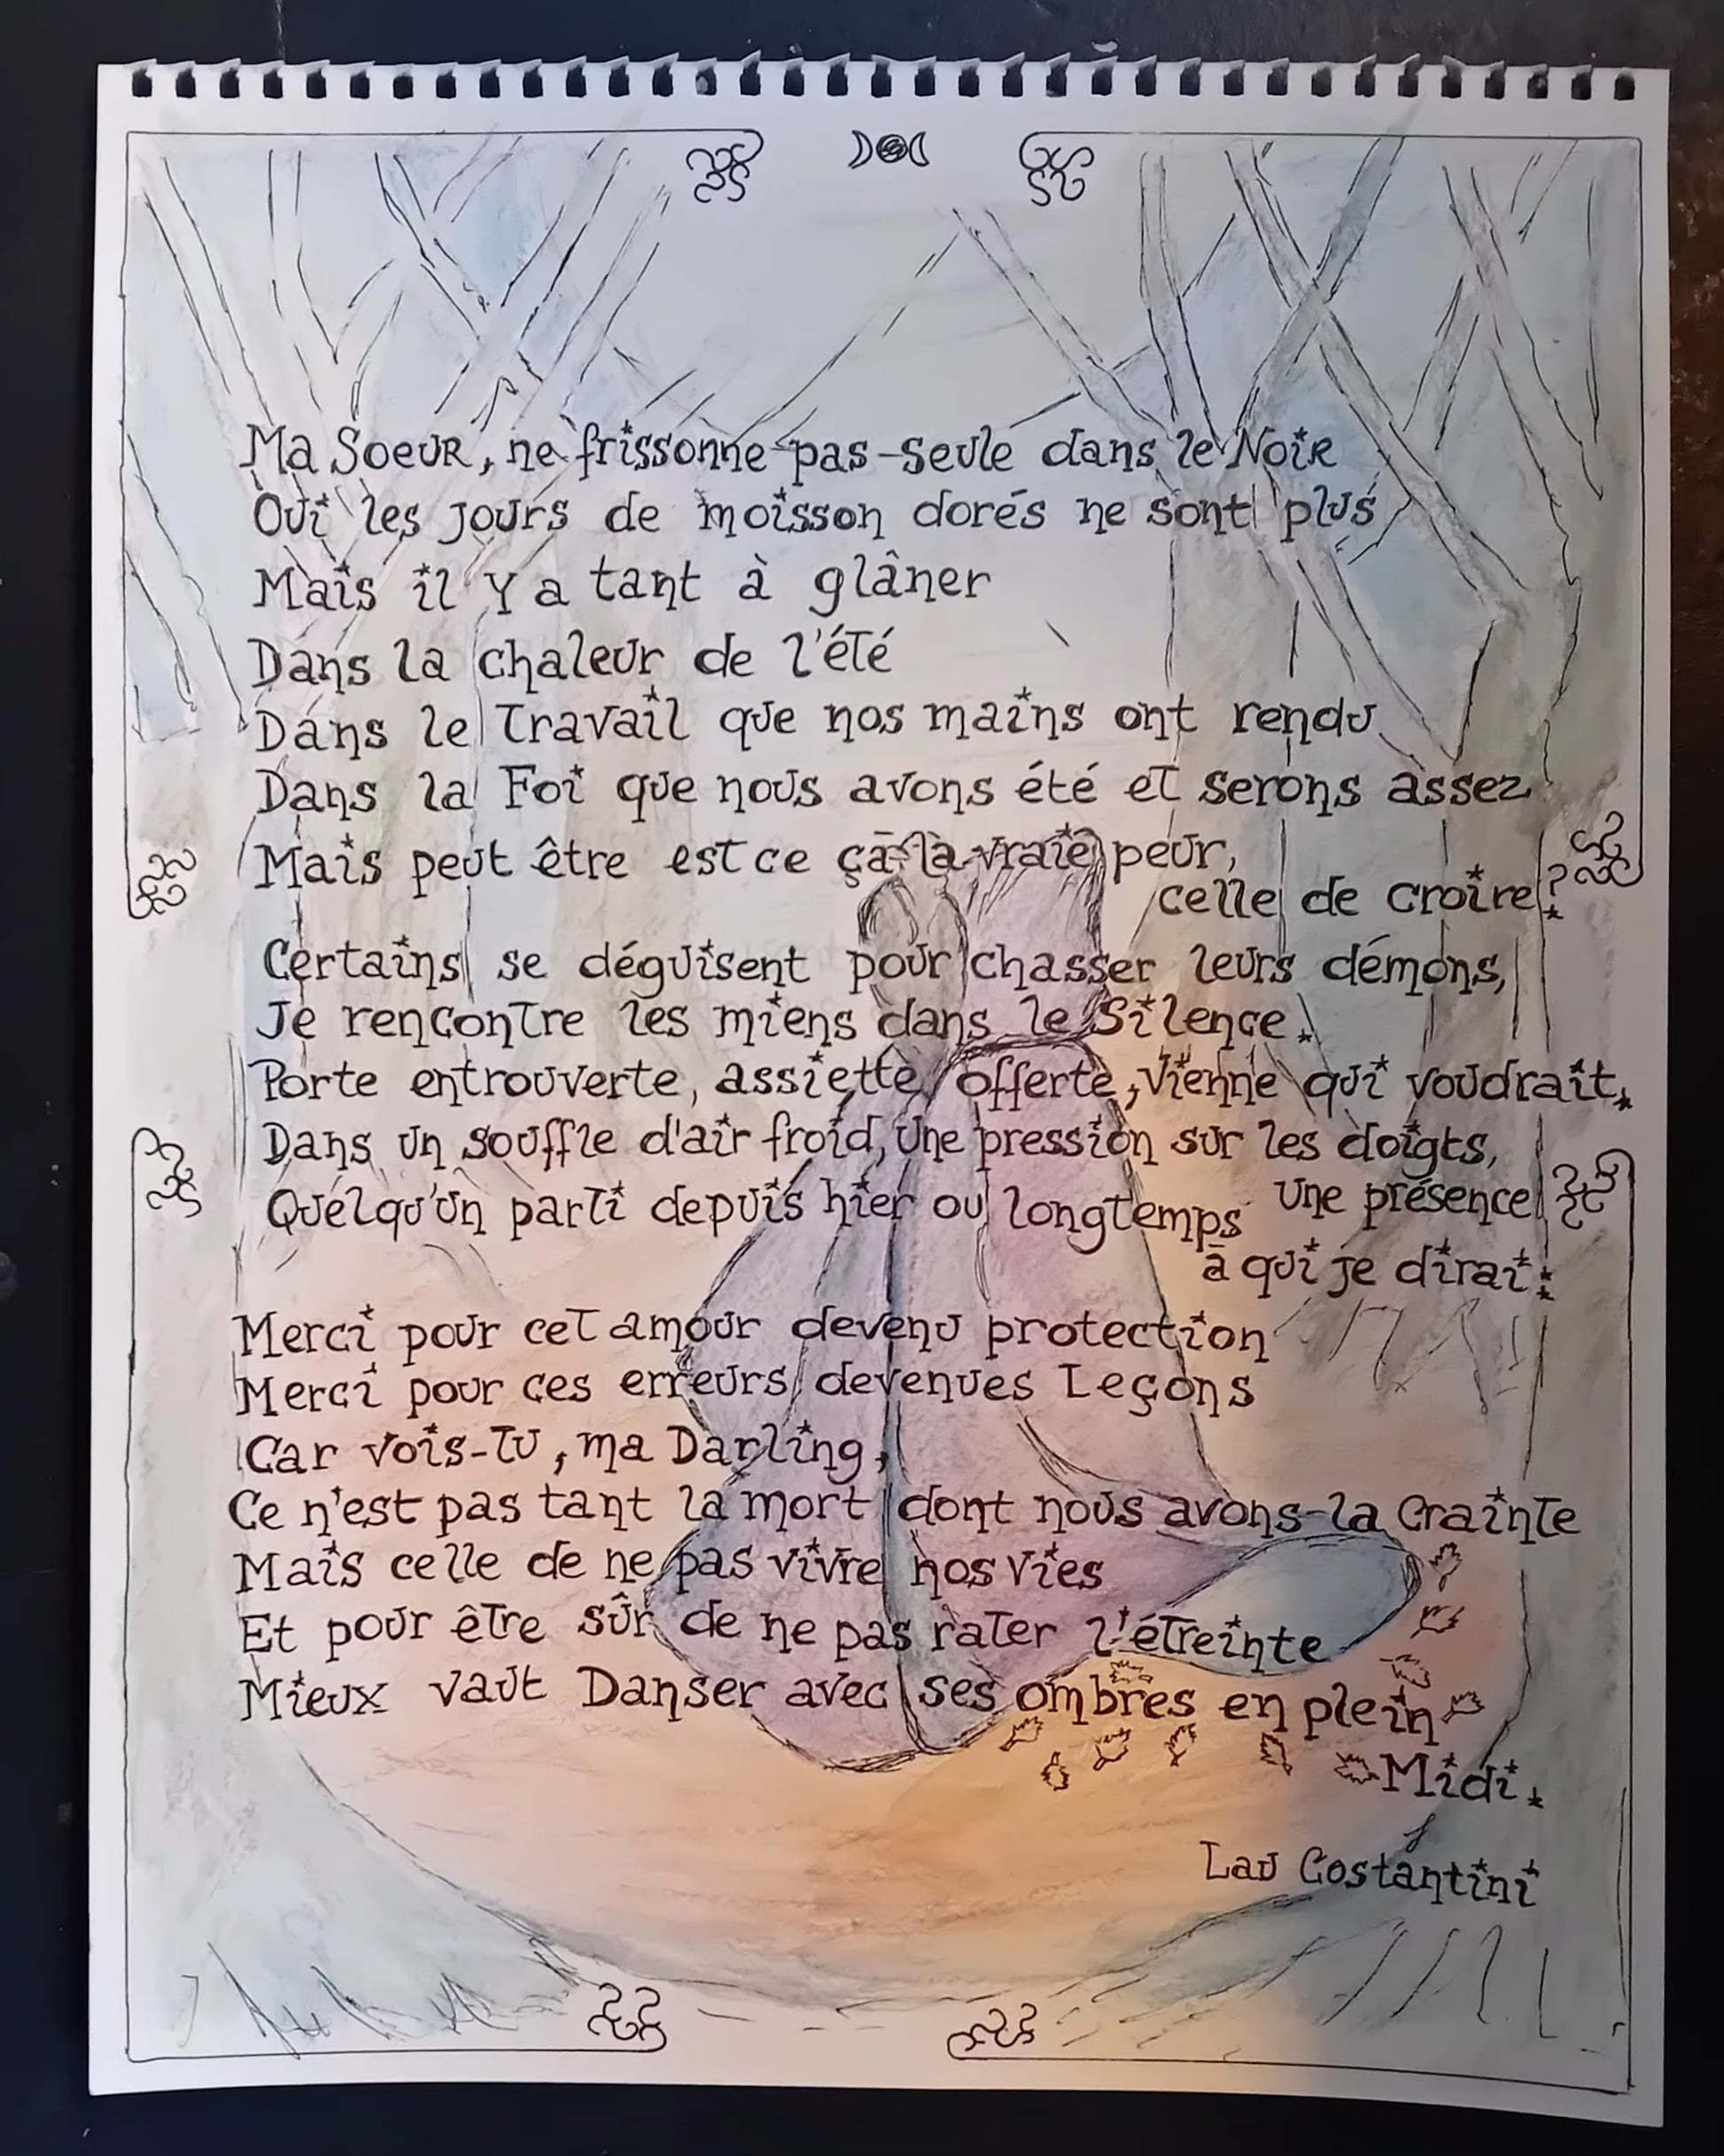 Ma Soeur, ne frissonne pas seule dans le Noir
Oui les jours de moisson dorés ne sont plus
Mais il y a tant à glâner
Dans la chaleur de l'été
Dans le travail que nos mains ont rendu
Dans la Foi que nous avons été et serons assez
Mais peut être est ce ça la vraie peur,
celle de croire?
Certains se déguisent pour chasser leurs démons,
Je rencontre les miens dans le Silence.
Porte entrouverte, assiette offerte, vienne qui voudrait.
Dans un souffle d'air froid, une pression sur les doigts,
une présence
Quelqu'un parti depuis hier ou longtemps
à qui je dirai:
Merci pour cet amour devenu protection
Merci pour ces erreurs devenues Leçons
Car vois-tu, ma Darling,
Ce n'est pas tant la mort dont nous avons la crainte
Mais celle de ne pas vivre nos vies
Et pour être sûr de ne pas rater l'étreinte
Mieux vaut Danser avec ses ombres en plein
Midi.
Lau Costantini